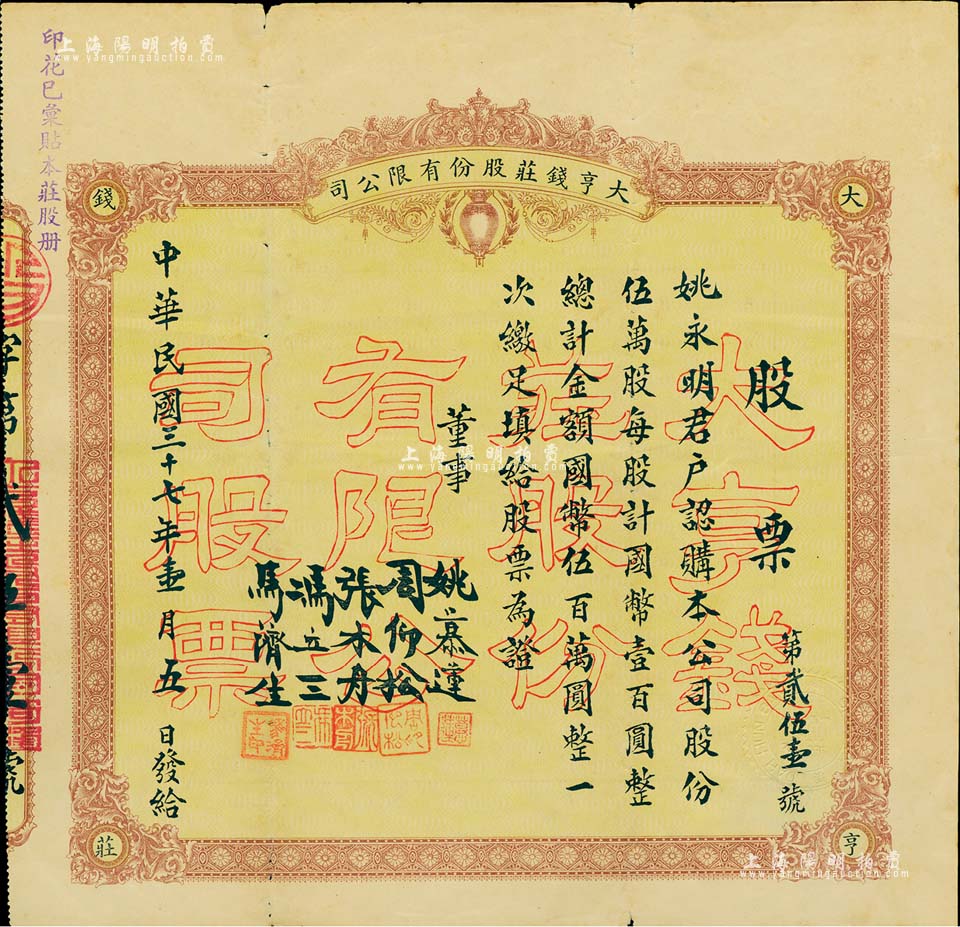 上海陽明拍賣
www.yangmingauction.com
印花已彙貼本莊股册
大亨錢莊股份有限公司
大
亨
錢
莊
股票
第貳伍壹號
姚永明君戶認購本公司股份
伍萬股每股計國幣壹百圓整
總計金額國幣伍百萬圓整一
次繳足填給股票為證
董事
姚慕蓮
周仰松
張木丹
馮立三
馬濟生
中華民國三十七年壹月五日發給
大亨錢
莊股份
有限公
司股票
字第
貳伍壹號
上海陽明拍賣
www.yangmingauction.com
上海陽明拍賣
www.yangmingauction.com